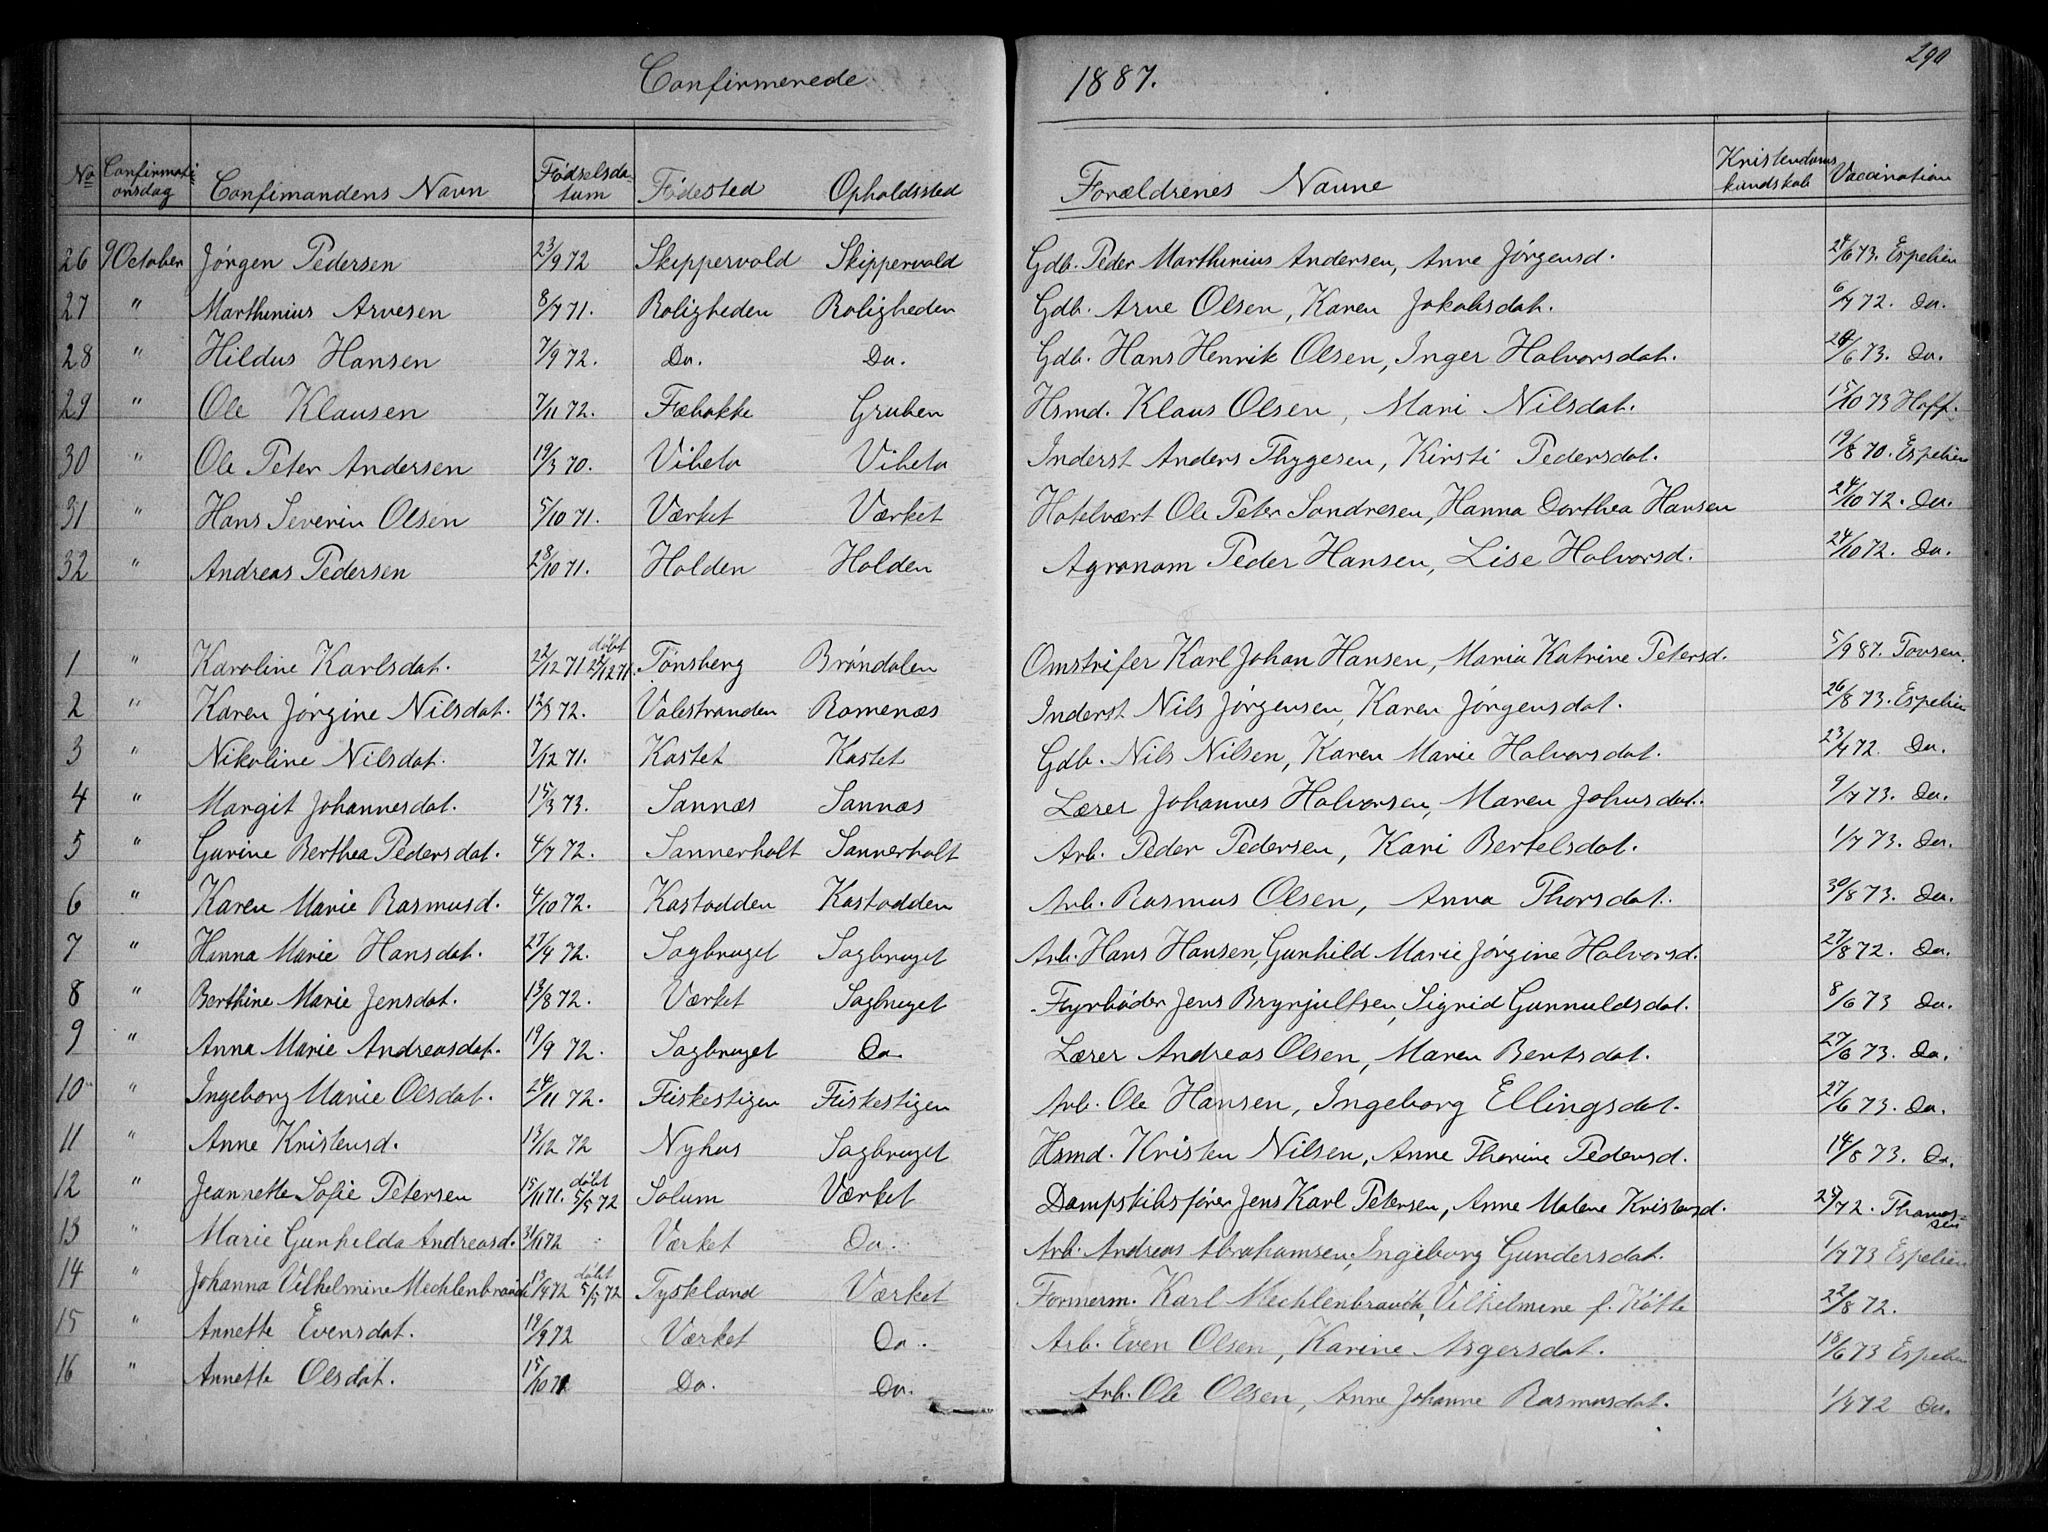 Confirmerede 1887. 290
No Confirmationsdag Confirmandens Navn Fødselsdatum Fødested Opholdssted Forældrenes Navne Kristendomskundskab Vaccination
26 9 October Jørgen Pedersen 23/9 72 Skippervold Skippervold Gdb. Peder Marthinius Andersen, Anne Jørgensd. 24/6 73. Espelien
27 " Marthinius Arvesen 8/7 71. Roligheden Roligheden Gdb. Arve Olsen, Karen Jakobsdat. 6/7 72. Do.
28 " Hildus Hansen 7/9 72. Do. Do. Gdb. Hans Henrik Olsen, Inger Halvorsdat. /6 73. Do.
29 " Ole Klausen 7/11 72. Fæbakke Gruben Hsmd. Klaus Olsen, Mari Nilsdat. 15/10 73 Hoff.
30 " Ole Peter Andersen 19/3 70. Viheta Viheta Inderst Anders Thygesen, Kirsti Pedersdat. 19/8 70. Espelien
31 " Hans Severin Olsen 5/10 71. Værket Værket Hotelvært Ole Peter Sandresen, Hanna Dorthea Hansen 24/10 72. Do.
32 " Andreas Pedersen 28/10 71. Holden Holden Agronom Peder Hansen, Lise Halvorsd. 24/10 72. Do.
1 " Karoline Karlsdat. 22/12 71 døbt /12 71. Tønsberg Brøndalen Omstrifer Karl Johan Hansen, Maria Katrine Petersd. 5/9 87. Tovsen.
2 " Karen Jørgine Nilsdat. 12/5 72. Valestranden Romenæs Inderst Nils Jørgensen, Karen Jørgensdat. 26/8 73. Espelien
3 " Nikoline Nilsdat. 7/12 71. Kastet Kastet Gdb. Nils Nilsen, Karen Marie Halvorsdat. 23/7 72. Do.
4 " Margit Johannesdat. 15/3 73. Sannæs Sannæs Lærer Johannes Halvorsen, Maren Johnsdat. 9/7 73. Do.
5 " Gurine Berthea Pedersdat. 4/7 72. Sannerholt Sannerholt Arb. Peder Pedersen, Kari Bertelsdat. 1/7 73. Do.
6 " Karen Marie Rasmusd. 4/10 72. Kastodden Kastodden Arb. Rasmus Olsen, Anna Thorsdat. 30/8 73. Do.
7 " Hanna Marie Hansdat. 27/4 72. Sagbruget Sagbruget Arb. Hans Hansen, Gunhild Marie Jørgine Halvorsd. 27/8 72. Do.
8 " Berthine Marie Jensdat. 13/8 72. Værket Sagbruget Fyrbøder Jens Brynjulfsen, Sigrid Gunnuldsdat. 8/6 73 Do.
9 " Anna Marie Andreasdat. 19/9 72. Sagbruget Do. Lærer Andreas Olsen, Maren Bentsdat. 27/6 73. Do.
10 " Ingeborg Marie Olsdat. 24/11 72. Fiskestigen Fiskestigen Arb. Ole Hansen, Ingeborg Ellingsdat. 27/6 73. Do.
11 " Anne Kristensd. 13/12 72 Nyhus Sagbruget Hsmd. Kristen Nilsen, Anne Thorine Pedersd. 14/8 73. Do.
12 " Jeannette Sofie Petersen 15/11 71. døbt 5/5 72 Solum Værket Dampskibsfører Jens Karl Petersen, Anne Malene Kristensd. 29/ 72. Thomassen
13 " Marie Gunhilda Andreasd. 3/11 72 Værket Do. Arb. Andreas Abrahamsen, Ingeborg Gundersdat. 1/7 73 Espelien
14 " Johanna Vilhelmine Mechlenbrauck 13/4 72 døbt 5/5 72 Tyskland Værket Formerm. Karl Mechlenbrauck, Vilhelmine f. Kötte 22/8 72.
15 " Annette Evensdat. 19/9 72 Værket Do. Arb. Even Olsen, Karine Asgersdat. 18/6 73 Espelien
16 " Annette Olsdat. 15/10 71 Do. Do. Arb. Ole Olsen, Anne Johanne Rasmusdat. 1/7 72 Do.